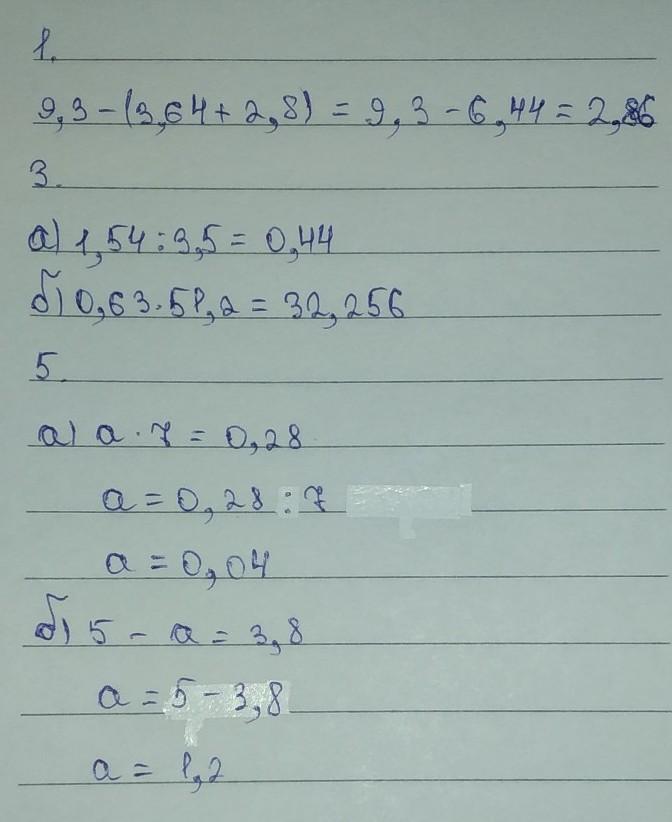 1.
9,3-(3,64+2,8) = 9,3-6,44 = 2,86
3.
а) 1,54:3,5 = 0,44
б) 0,63·51,2 = 32,256
5.
а) a·7 = 0,28
a = 0,28:7
a = 0,04
б) 5 - a = 3,8
a = 5 - 3,8
a = 1,2